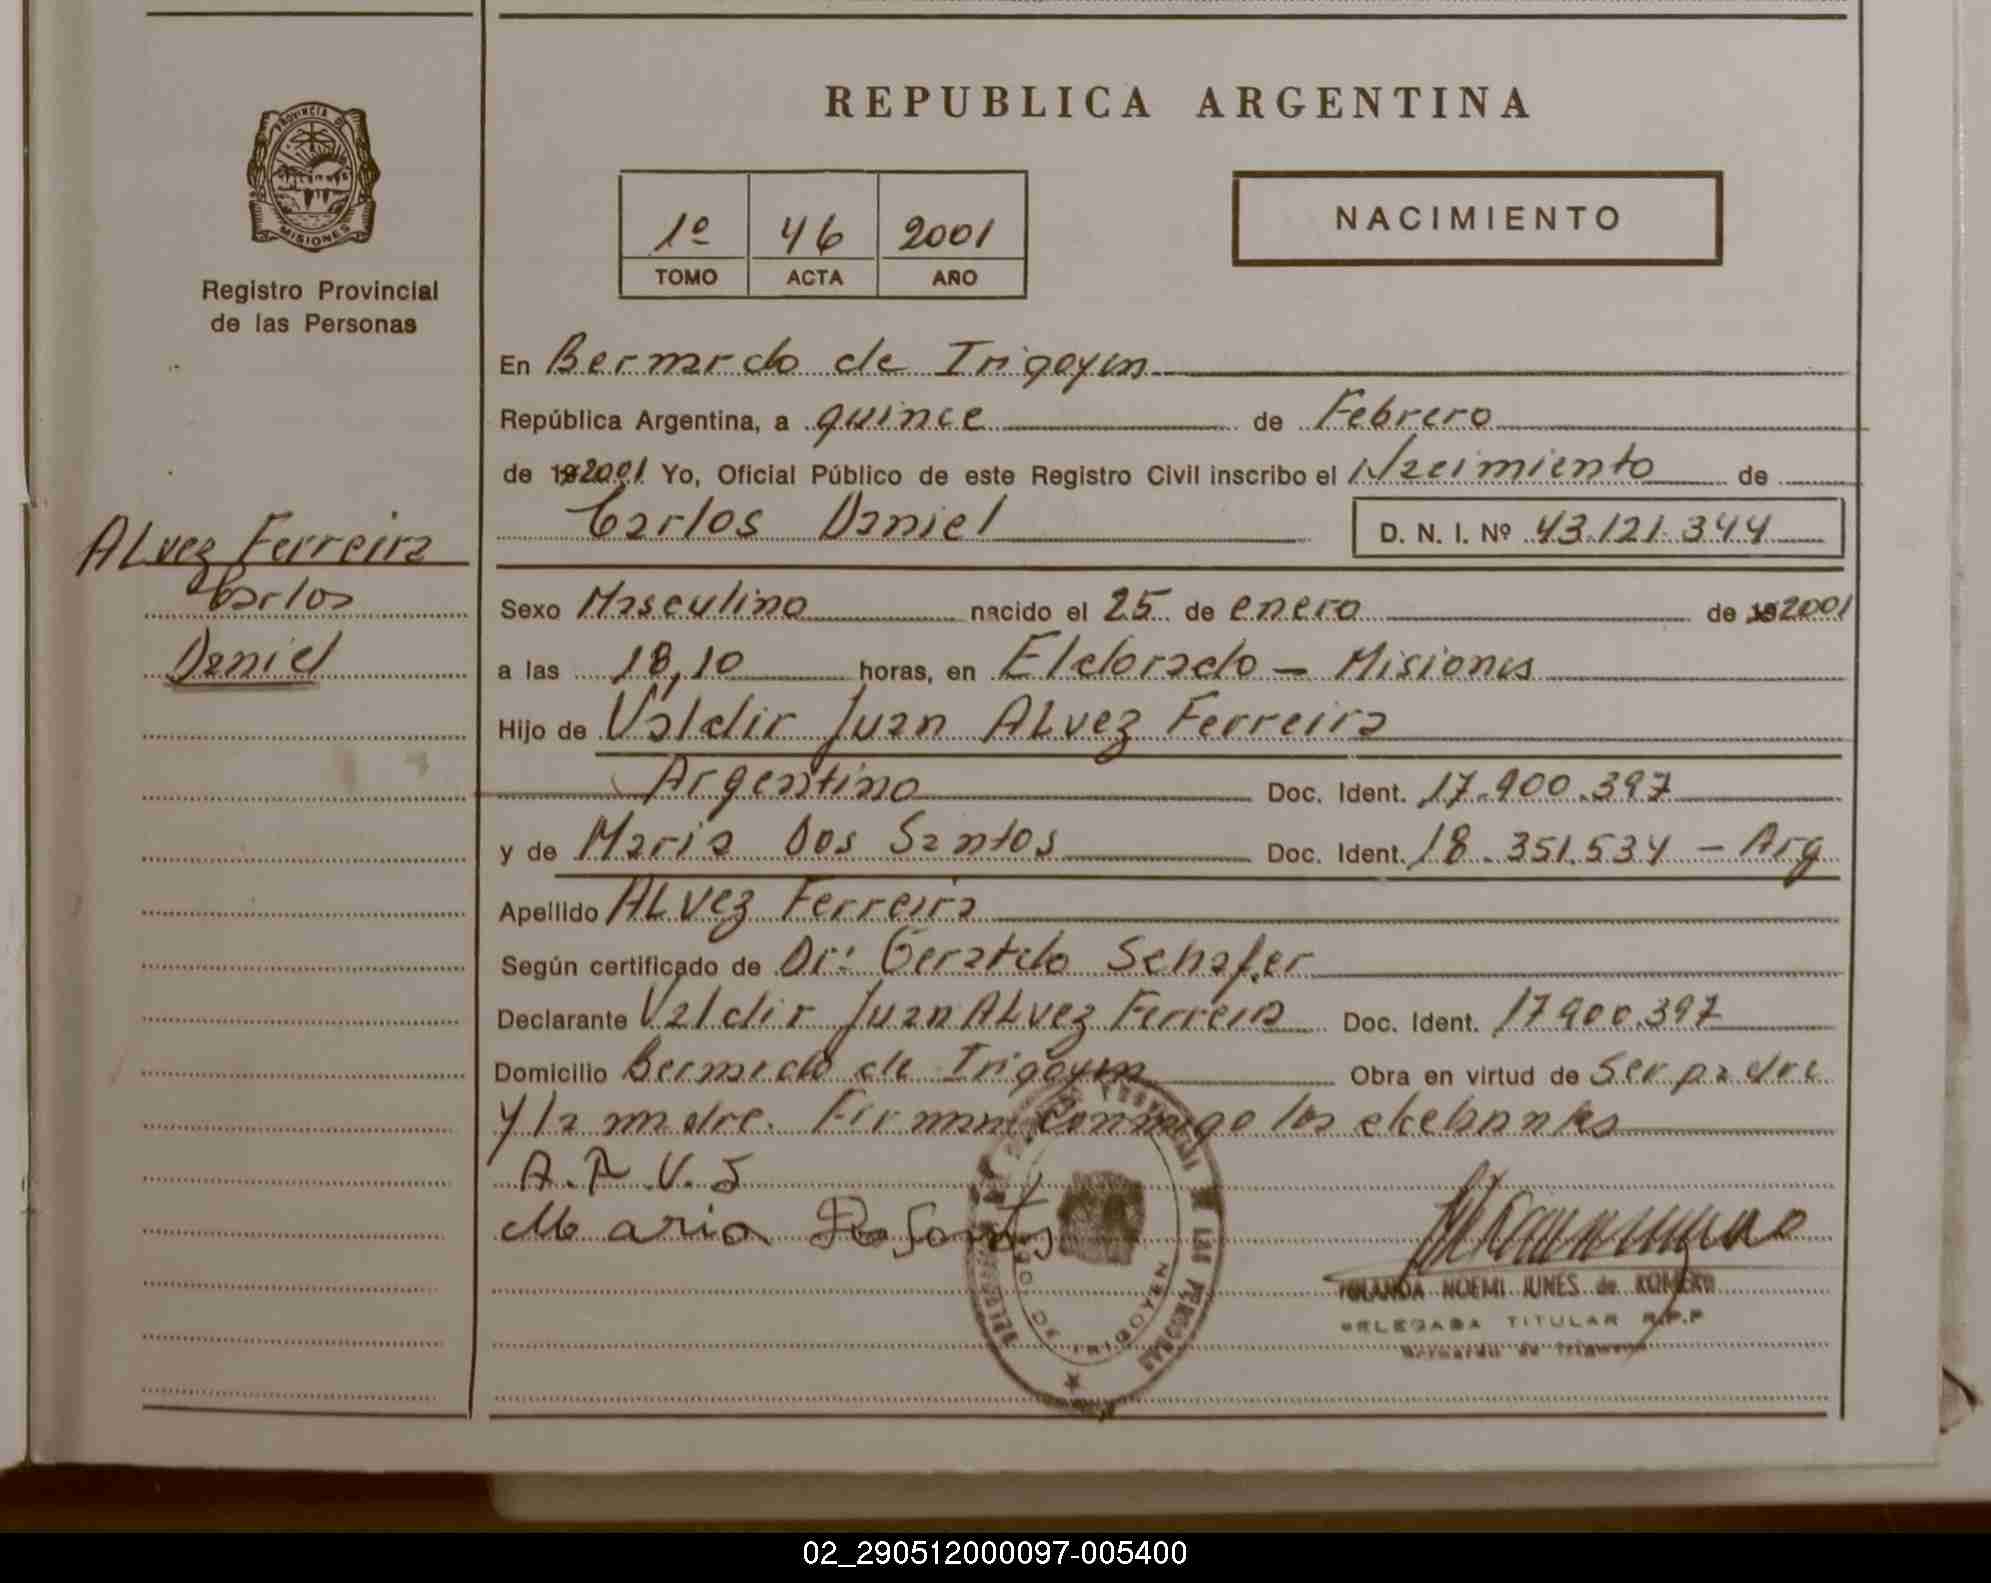 PROVINCIA D
MISIONES
Registro Provincial
de las Personas
ALvez Ferreira
Carlos
Daniel
REPUBLICA ARGENTINA
1º 46 2001
TOMO ACTA AÑO
NACIMIENTO
En Bernardo de Irigoyen
República Argentina, a quince de Febrero
de 192001 Yo, Oficial Público de este Registro Civil inscribo el Nacimiento de
Carlos Daniel D. N. I. Nº 43.121.344
Sexo Masculino nacido el 25 de enero de 192001
a las 18,10 horas, en Eldorado – Misiones
Hijo de Valdir Juan ALvez Ferreira
Argentino Doc. Ident. 17.900.397
y de Maria Dos Santos Doc. Ident. 18.351.534 – Arg
Apellido ALvez Ferreira
Según certificado de Dr: Schafer
Declarante Valdir Juan ALvez Ferreira Doc. Ident. 17900.397
Domicilio Bernardo de Irigoyen Obra en virtud de Ser padre
y la madre. Firman conmigo los
A.F.V.J
Maria
DE IRIGOYEN
LAS PERSONAS
YOLANDA NOEMI JUNES de ROMERO
DELEGADA TITULAR R.P.P
Bernardo de Irigoyen
02_290512000097-005400